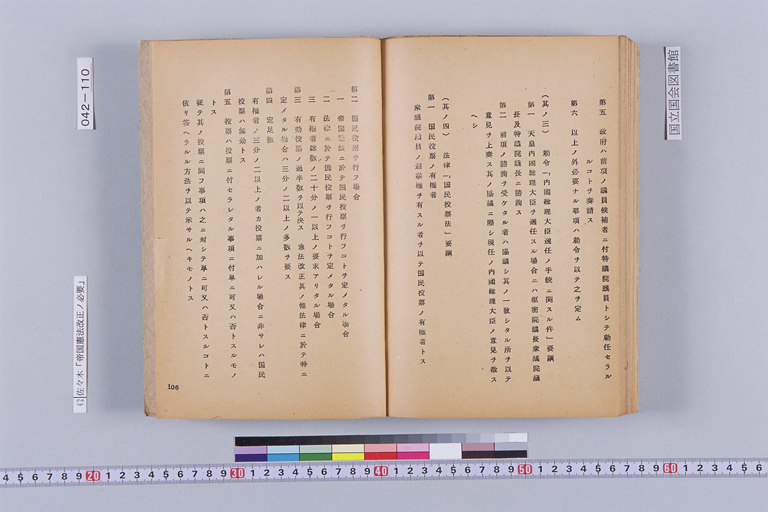 第五　政府ハ前項ノ議員候補者ニ付特議院議員トシテ勅任セラル
ルコトヲ奏請ス
第六　以上ノ外必要ナル事項ハ勅令ヲ以テ之ヲ定ム
（其ノ三）　勅令「内閣総理大臣選任ノ手続ニ関スル件」要綱
第一　天皇内閣総理大臣ヲ選任スル場合ニハ枢密院議長衆議院議
長及特議院議長ニ諮詢ス
第二　前項ノ諮詢ヲ受ケタル者ハ協議シ其ノ一致シタル所ヲ以テ
意見ヲ上奏ス其ノ協議ニ際シ現任ノ内閣総理大臣ノ意見ヲ徴ス
ヘシ
（其ノ四）　法律「国民投票法」要綱
第一　国民投票ノ有権者
衆議院議員ノ選挙権ヲ有スル者ヲ以テ国民投票ノ有権者トス
第二　国民投票ヲ行フ場合
一　帝国憲法ニ於テ国民投票ヲ行フコトヲ定メタル場合
二　法律ニ於テ国民投票ヲ行フコトヲ定メタル場合
三　有権者総数ノ二十分ノ一以上ノ要求アリタル場合
第三　有効投票ノ過半数ヲ以テ決ス　憲法改正其ノ他法律ニ於テ特ニ
定メタル場合ハ三分ノ二以上ノ多数ヲ要ス
第四　定足数
有権者ノ三分ノ二以上ノ者カ投票ニ加ハレル場合ニ非サレハ国民
投票ハ無効トス
第五　投票ハ投票ニ付セラレタル事項ニ付単ニ可又ハ否トスルモノ
トス
従テ其ノ投票ニ問フ事項ハ之ニ対シテ単ニ可又ハ否トスルコトニ
依リ答ヘラルル方法ヲ以テ示サルヘキモノトス
106
042－110
42佐々木「帝国憲法改正ノ必要」
国立国会図書館
4 5 6 7 8 9 20 1 2 3 4 5 6 7 8 9 30 1 2 3 4 5 6 7 8 9 40 1 2 3 4 5 6 7 8 9 50 1 2 3 4 5 6 7 8 9 60 1 2 3 4 5 6